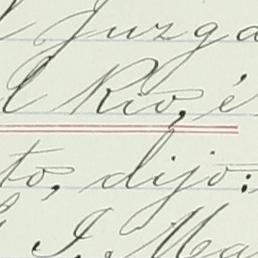 l Juzga
l Rio, é
to, dijo:
I. Ma